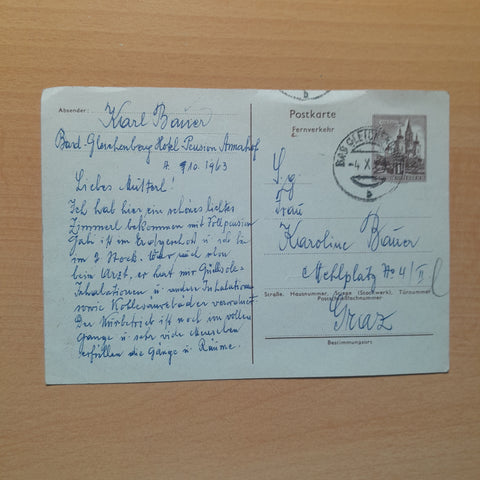 Absender: Karl Bauer
Bad Gleichenberg Hotel Pension Annahof
10. 1963
Liebes Mutterl!
Ich hab hier ein schönes lichtes
Zimmerl bekommen mit Vollpension
Gabi ist im Erdgeschoß u. ich bin
im 2. Stock. War auch schon
beim Arzt, er hat mir Gußsole-
Inhalationen u. andere Inhalationen
sowie Kohlensäurebäder verordnet
Der Kurbetrieb ist noch im vollen
Gange u. sehr viele Menschen
erfüllen die Gänge u. Räume.
Postkarte
Fernverkehr
BAD GLEICHENBERG
-4. X.
b
b
S. g.
Frau
Karoline Bauer
Mehlplatz No 4/II
Straße, Hausnummer, Stiege (Stockwerk), Türnummer
Postschließfachnummer
Graz
Bestimmungsort